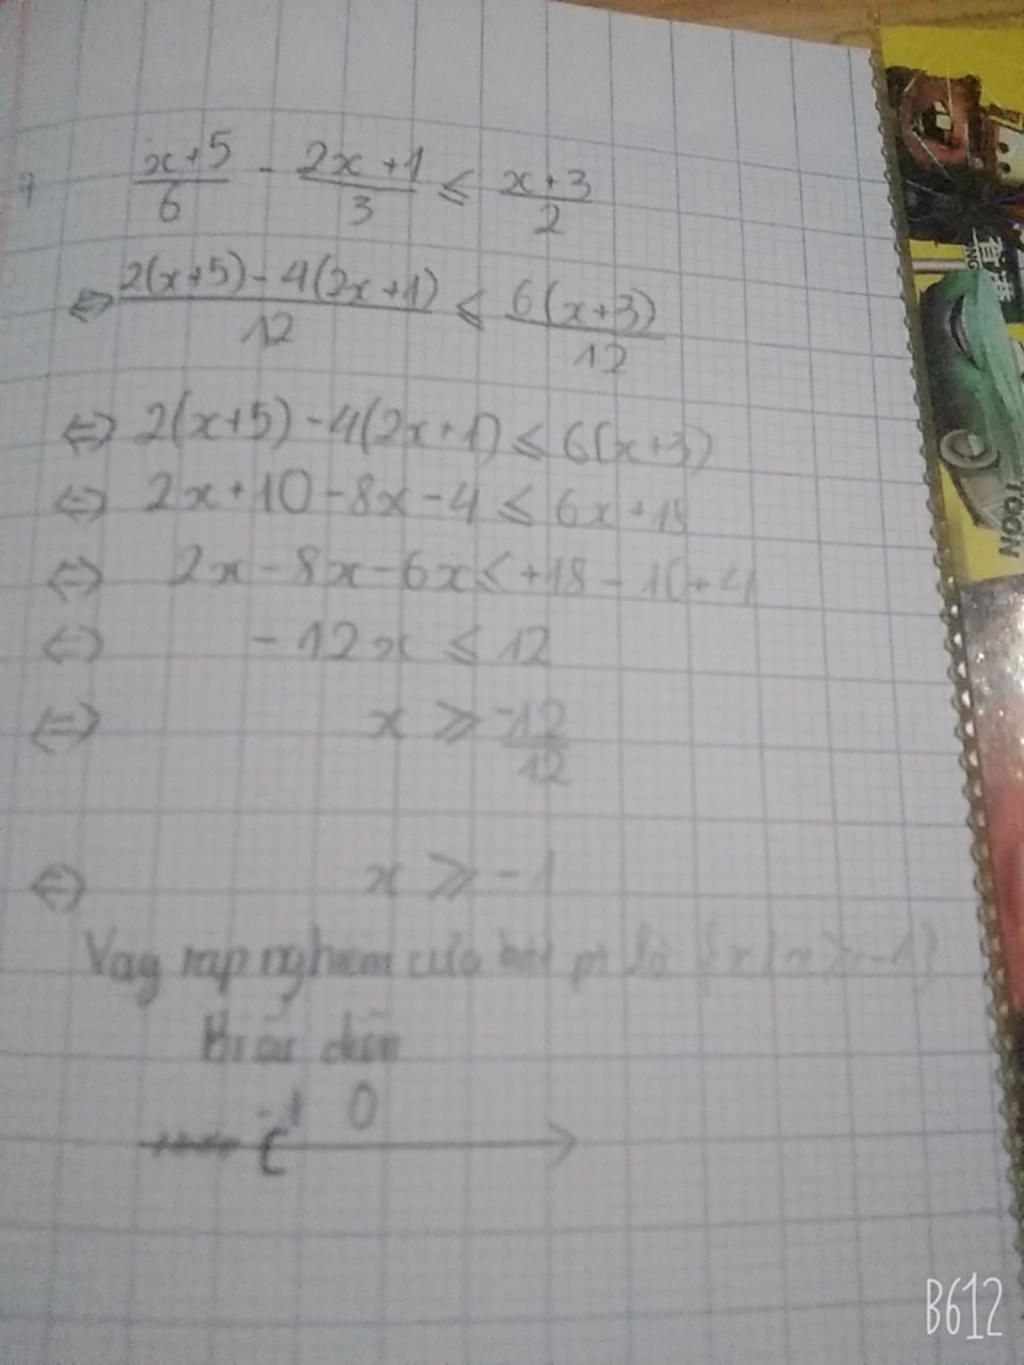 x+5/6 - 2x+1/3 ≤ x+3/2
⇔ 2(x+5)-4(2x+1)/12 ≤ 6(x+3)/12
⇔ 2(x+5)-4(2x+1) ≤ 6(x+3)
⇔ 2x+10-8x-4 ≤ 6x+18
⇔ 2x-8x-6x ≤ +18-10+4
⇔ -12x ≤ 12
⇔ x ≥ -12/12
⇔ x ≥ -1
Vậy tập nghiệm của bất pt là {x/x ≥ -1}
Biểu diễn
-1 0
TOON
B612